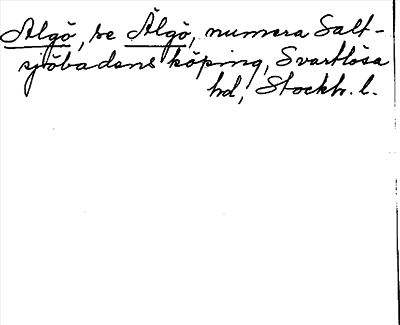 Algö, se Älgö, numera Salt-
sjöbadens köping, Svartlösa
hd, Stockh. l.